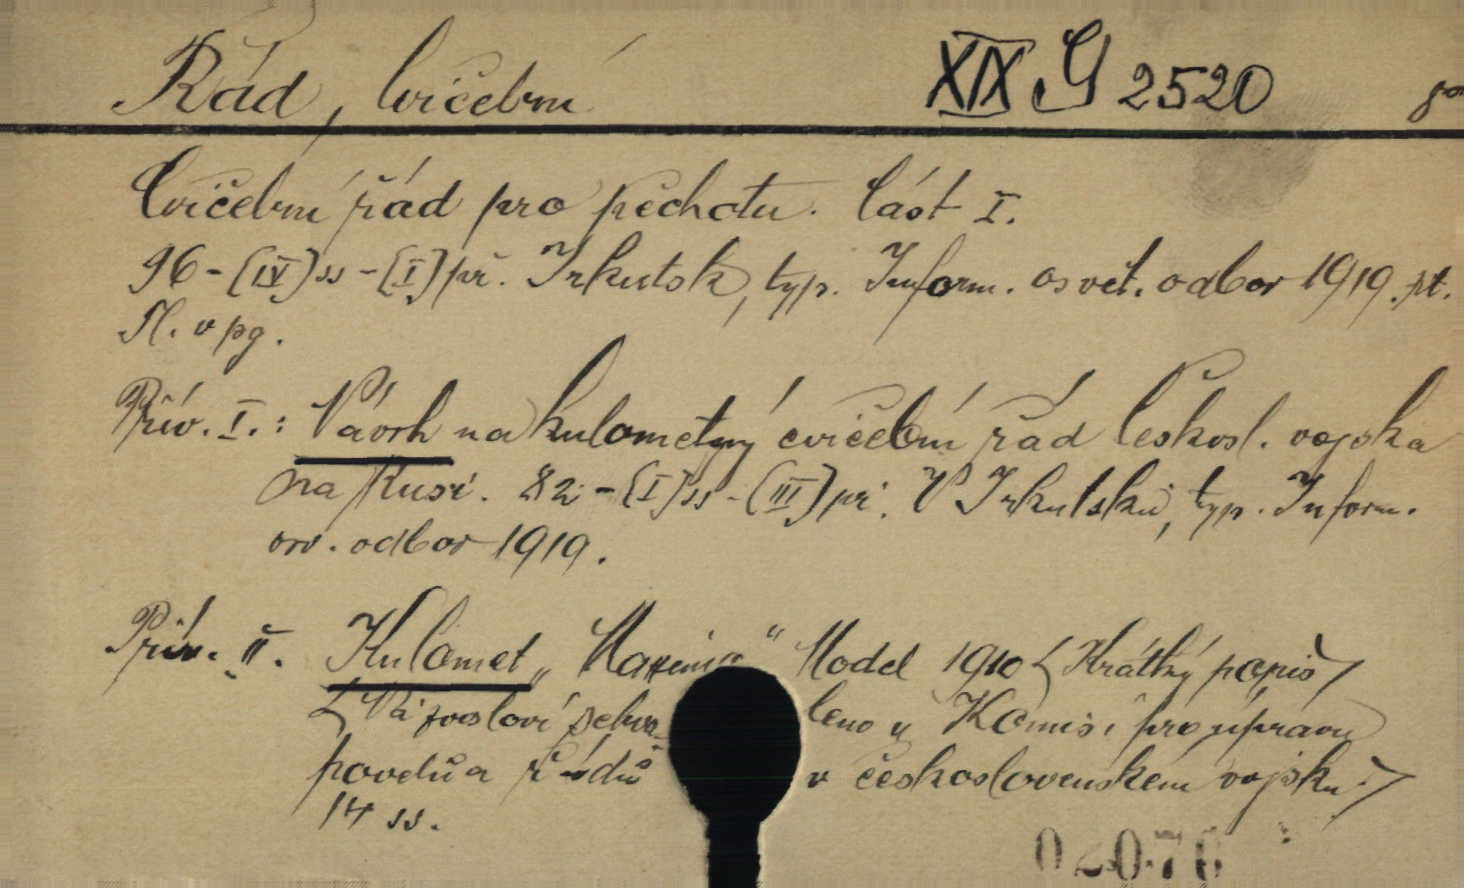 Řád, Cvičební XIX G 2520
Cvičební řád pro pěchotu. Část I.
96-(IV)ss-(I)př. Irkutsk, typ. Inform. osvět. odbor 1919. pt.
Pl. v pg.
Přív. I.: Návrh na kulometný cvičební řád Českosl. vojska
na Rusi. 82-(I)ss-(III)př. V Irkutsku, typ. Inform.
osv. odbor 1919.
Přív. II. Kulomet „Maxim“ Model 1910 (Krátký popis)
(Názvosloví schváleno v Komisi pro úpravu
povelů a řádů v československém vojsku.)
14 ss.
02076